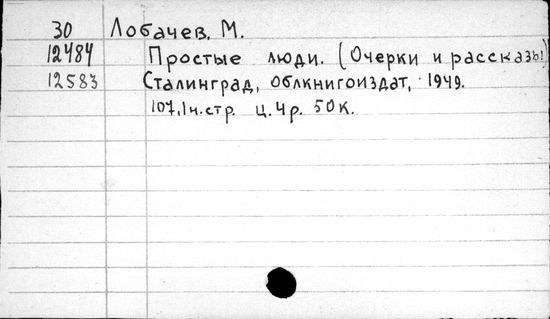 30 Лобачев, М.
12484 Простые люди. (Очерки и рассказы)
12583 Сталинград, облкнигоиздат, 1949.
107,1н.стр. ц. 4р. 50к.